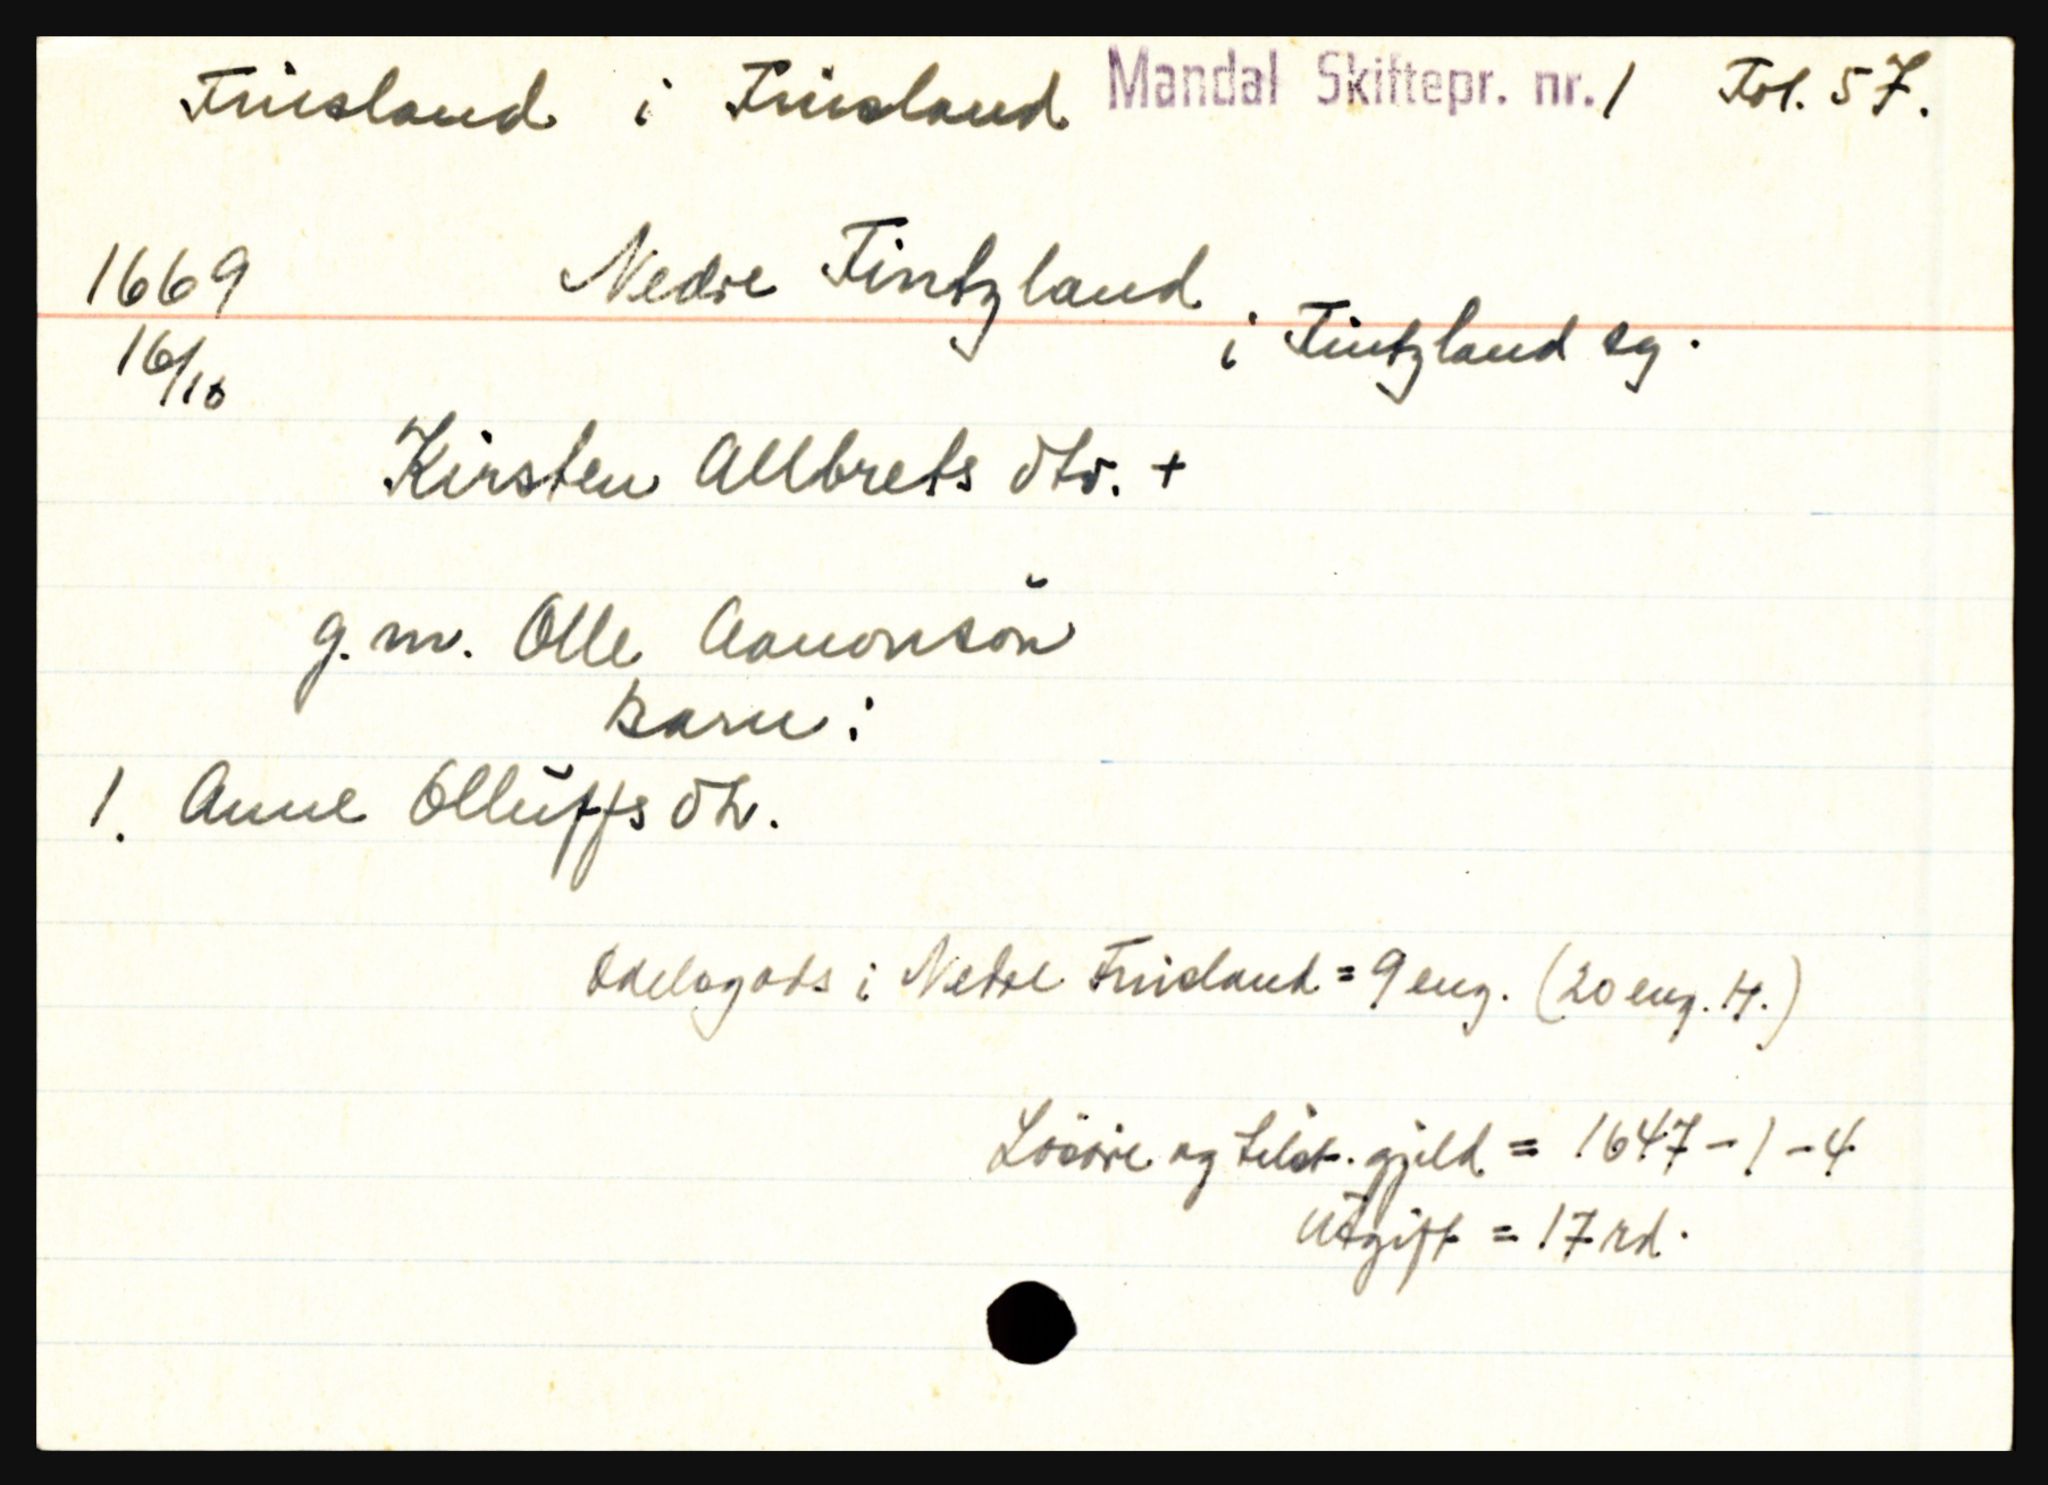 Finsland i Finsland Mandal Skiftepr. nr. 1 Fol. 57.
1669 Nedre Fintzland
i Fintzland sg.
16/10
Kirsten Allbrets dtr. +
g. m. Olle Aanonsøn
Barn:
1. Anne Olluffs dtr.
Odelsgods i Nedre Finsland = 9 eng. (20 eng. H.)
Løsøre og tilst. gjeld = 1647-1-4
Utgift = 17 rd.